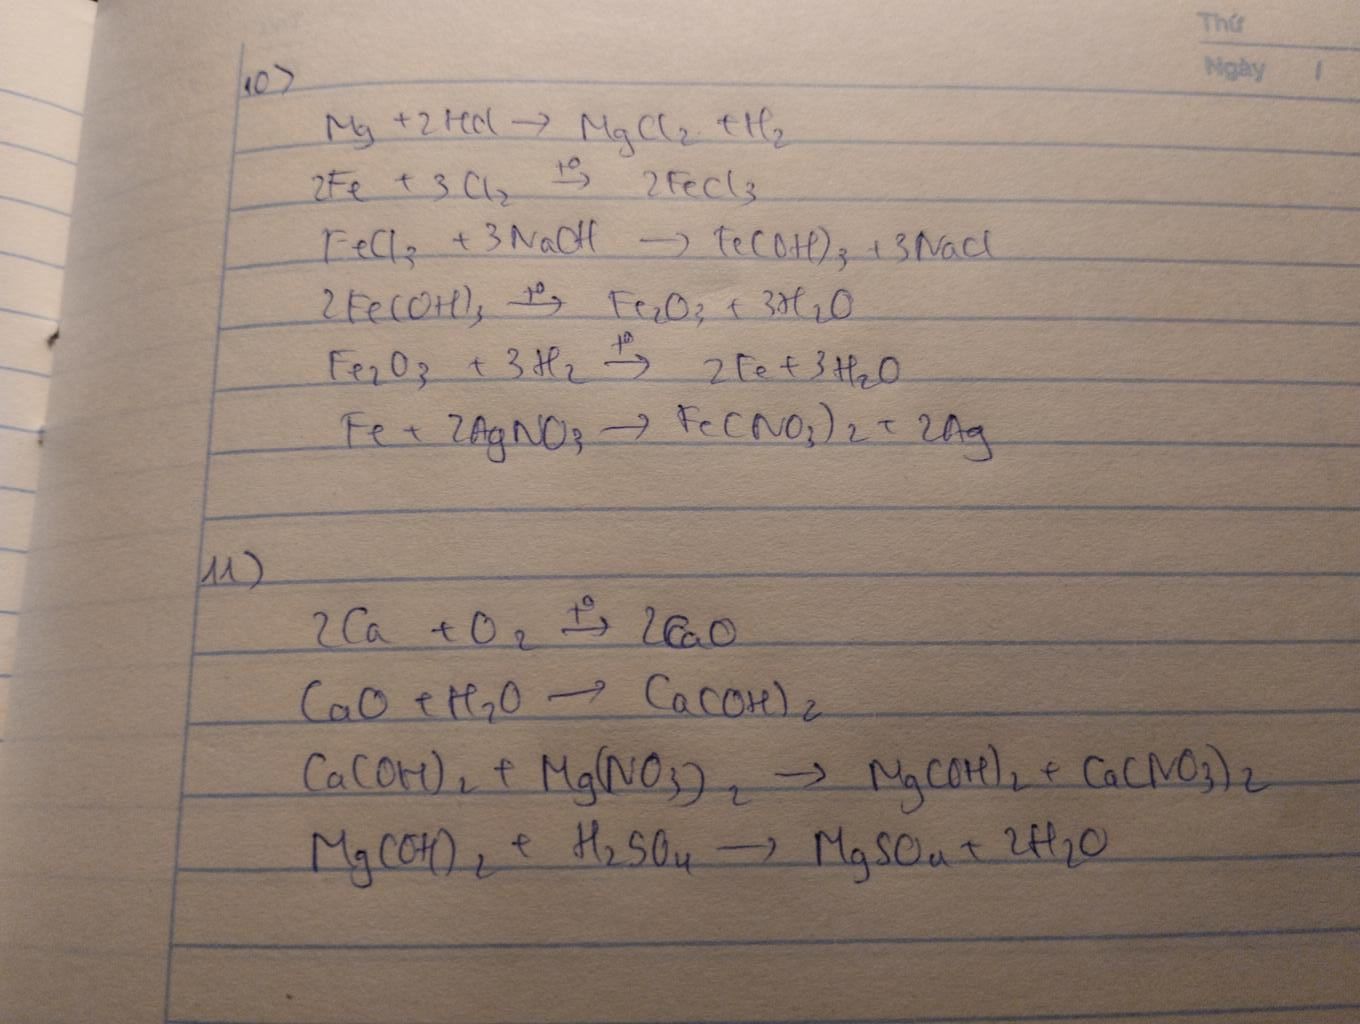 Thứ
Ngày
10)
Mg + 2HCl → MgCl₂ + H₂
2Fe + 3Cl₂ t⁰→ 2FeCl₃
FeCl₃ + 3NaOH → Fe(OH)₃ + 3NaCl
2Fe(OH)₃ t⁰→ Fe₂O₃ + 3H₂O
Fe₂O₃ + 3H₂ t⁰→ 2Fe + 3H₂O
Fe + 2AgNO₃ → Fe(NO₃)₂ + 2Ag
11)
2Ca + O₂ t⁰→ 2CaO
CaO + H₂O → Ca(OH)₂
Ca(OH)₂ + Mg(NO₃)₂ → Mg(OH)₂ + Ca(NO₃)₂
Mg(OH)₂ + H₂SO₄ → MgSO₄ + 2H₂O